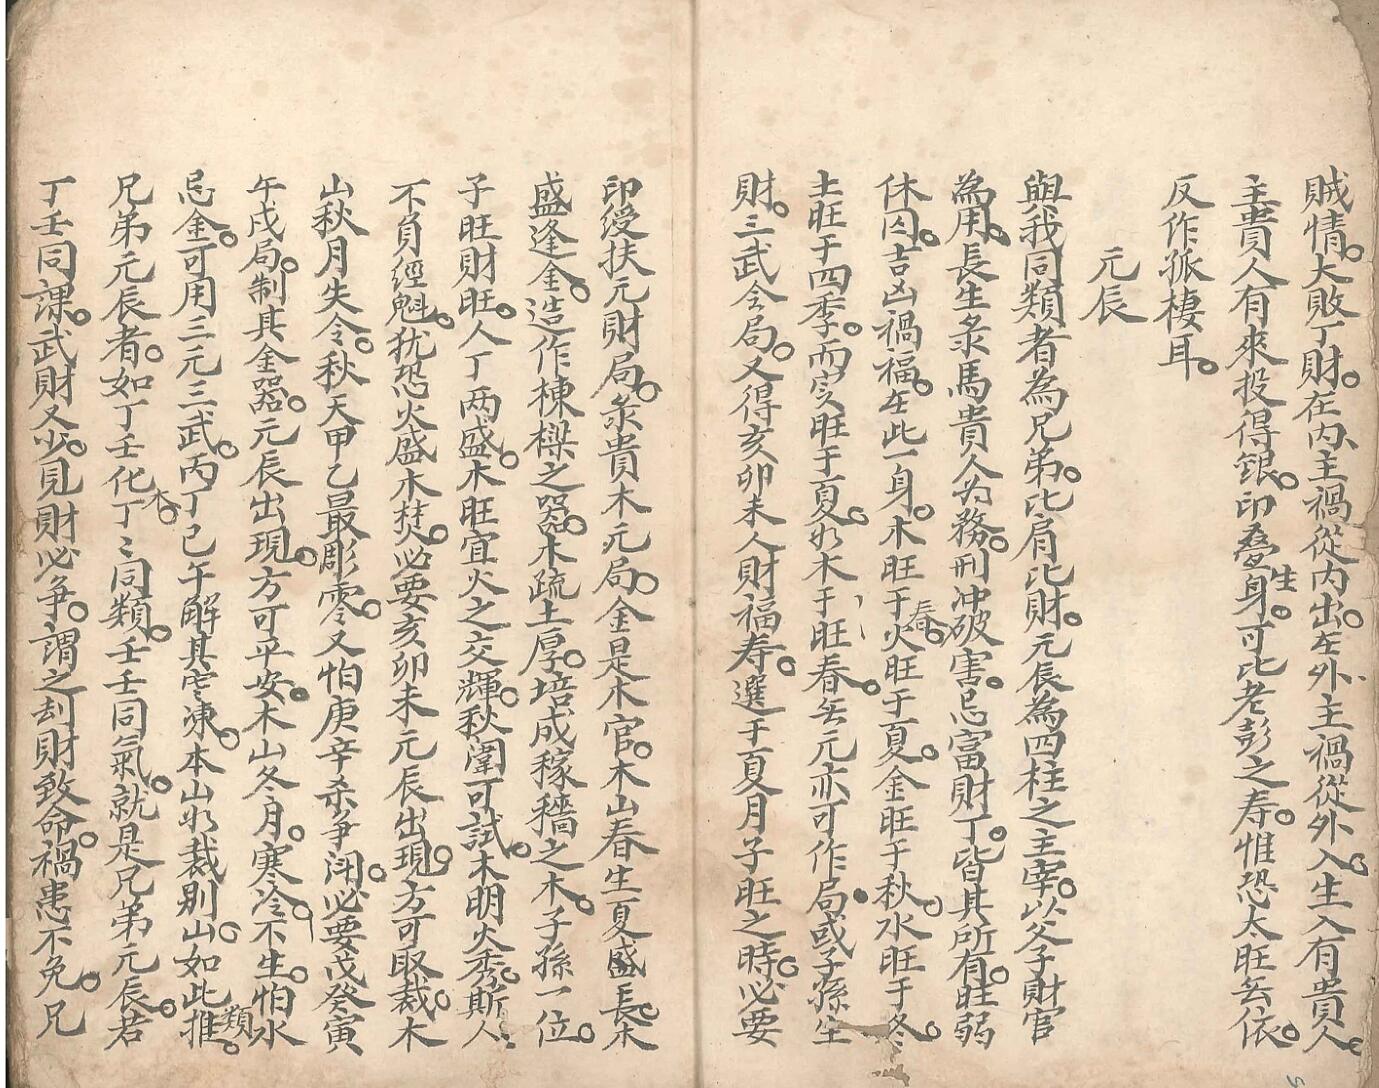 賊情。大敗丁財。在內主禍從內出。在外主禍從外入。生入有貴人。
主貴人有來投得銀。印叠生身。可比老彭之寿。惟恐太旺無依。
反作孤棲耳。
元辰
與我同類者為兄弟。比肩比財。元辰為四柱之主宰。以父子財官
為用。長生彔馬貴人为務。刑冲破害。忌富財丁。皆其所有。旺弱
休囚。吉凶禍福。在此一身。木旺于春。火旺于夏。金旺于秋。水旺于冬。
土旺于四季。而定旺于夏。如木于旺春。無元亦可作局。或子孫生
財。三武会局。又得亥卯未人財福寿。選于夏月子旺之時。必要
印绶扶元財局。彔貴木元局。金是木官。木山春生夏盛長。木
盛逢金。造作棟樑之器。木疏土厚。培成稼穡之木。子孫一位。
子旺財旺。人丁两盛。木旺宜火之交輝。秋闈可試。木明火秀。斯人
不負經魁。犹恐火盛木焚。必要亥卯未元辰出現。方可取裁。木
山秋月失令。秋天甲乙最彫零。又怕庚辛杀争闹。必要戊癸寅
午戌局。制其金器。元辰出現。方可平安。木山冬月。寒冷不生。怕水
忌金。可用三元三武。丙丁巳午解其寒凍。本山如裁别山如此類推。
兄弟元辰者。如丁壬化木。丁〻同類。壬壬同氣。就是兄弟元辰。若
丁壬同課。武財又少。見財必争。謂之刦財致命。禍患不免。兄